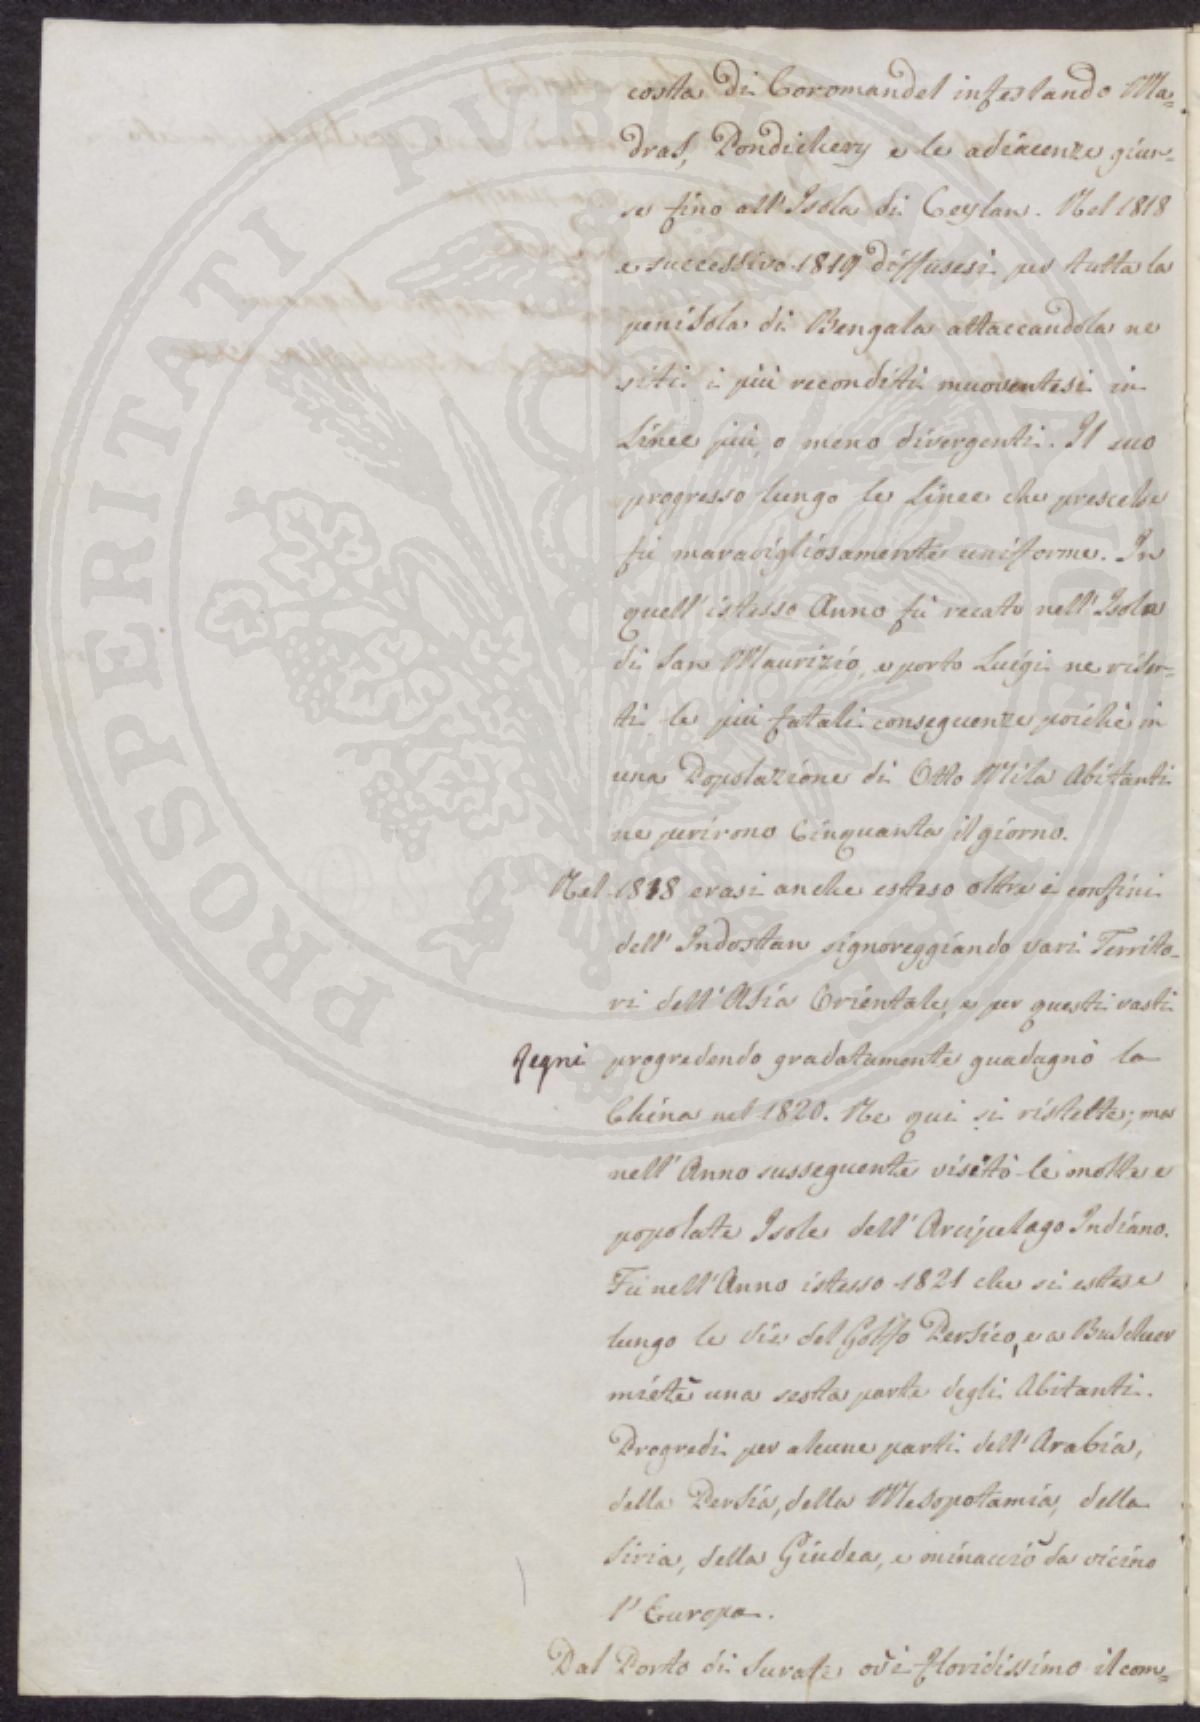 costa di Coromandel infestando Ma=
dras, Pondichery e le adiacenze giun=
se fino all'Isola di Ceylan. Nel 1818
e successivo 1819 diffusesi per tutta la
penisola di Bengala attaccandola ne
siti i più reconditi muoventesi in
Linee più, o meno divergenti. Il suo
progresso lungo le Linee che prescelse
fù maravigliosamente uniforme. In
quell'istesso Anno fù recato nell'Isola
di San Maurizio, e porto Luigi ne risen=
tì le più fatali conseguenze poichè in
una Popolazione di Otto Mila Abitanti
ne perirono Cinquanta il giorno.
Nel 1818 erasi anche esteso oltre i confini
dell'Indostan signoreggiando vari Territo=
ri dell'Asia Orientale, e per questi vasti
Regni progredendo gradatamente guadagnò la
China nel 1820. Ne qui si ristette; ma
nell'Anno susseguente visitò le molte e
popolate Isole dell'Arcipelago Indiano.
Fù nell'Anno istesso 1821 che si estese
lungo le vie del Golfo Persico, e a Buscheer
mietè una sesta parte degli Abitanti.
Progredì per alcune parti dell'Arabia,
della Persia, della Mesopotamia, della
Siria, della Giudea, e minacciò da vicino
l'Europa.
Dal Porto di Surate ov'è floridissimo il com=
PROSPERITATI PUBLICAE AUGENDAE